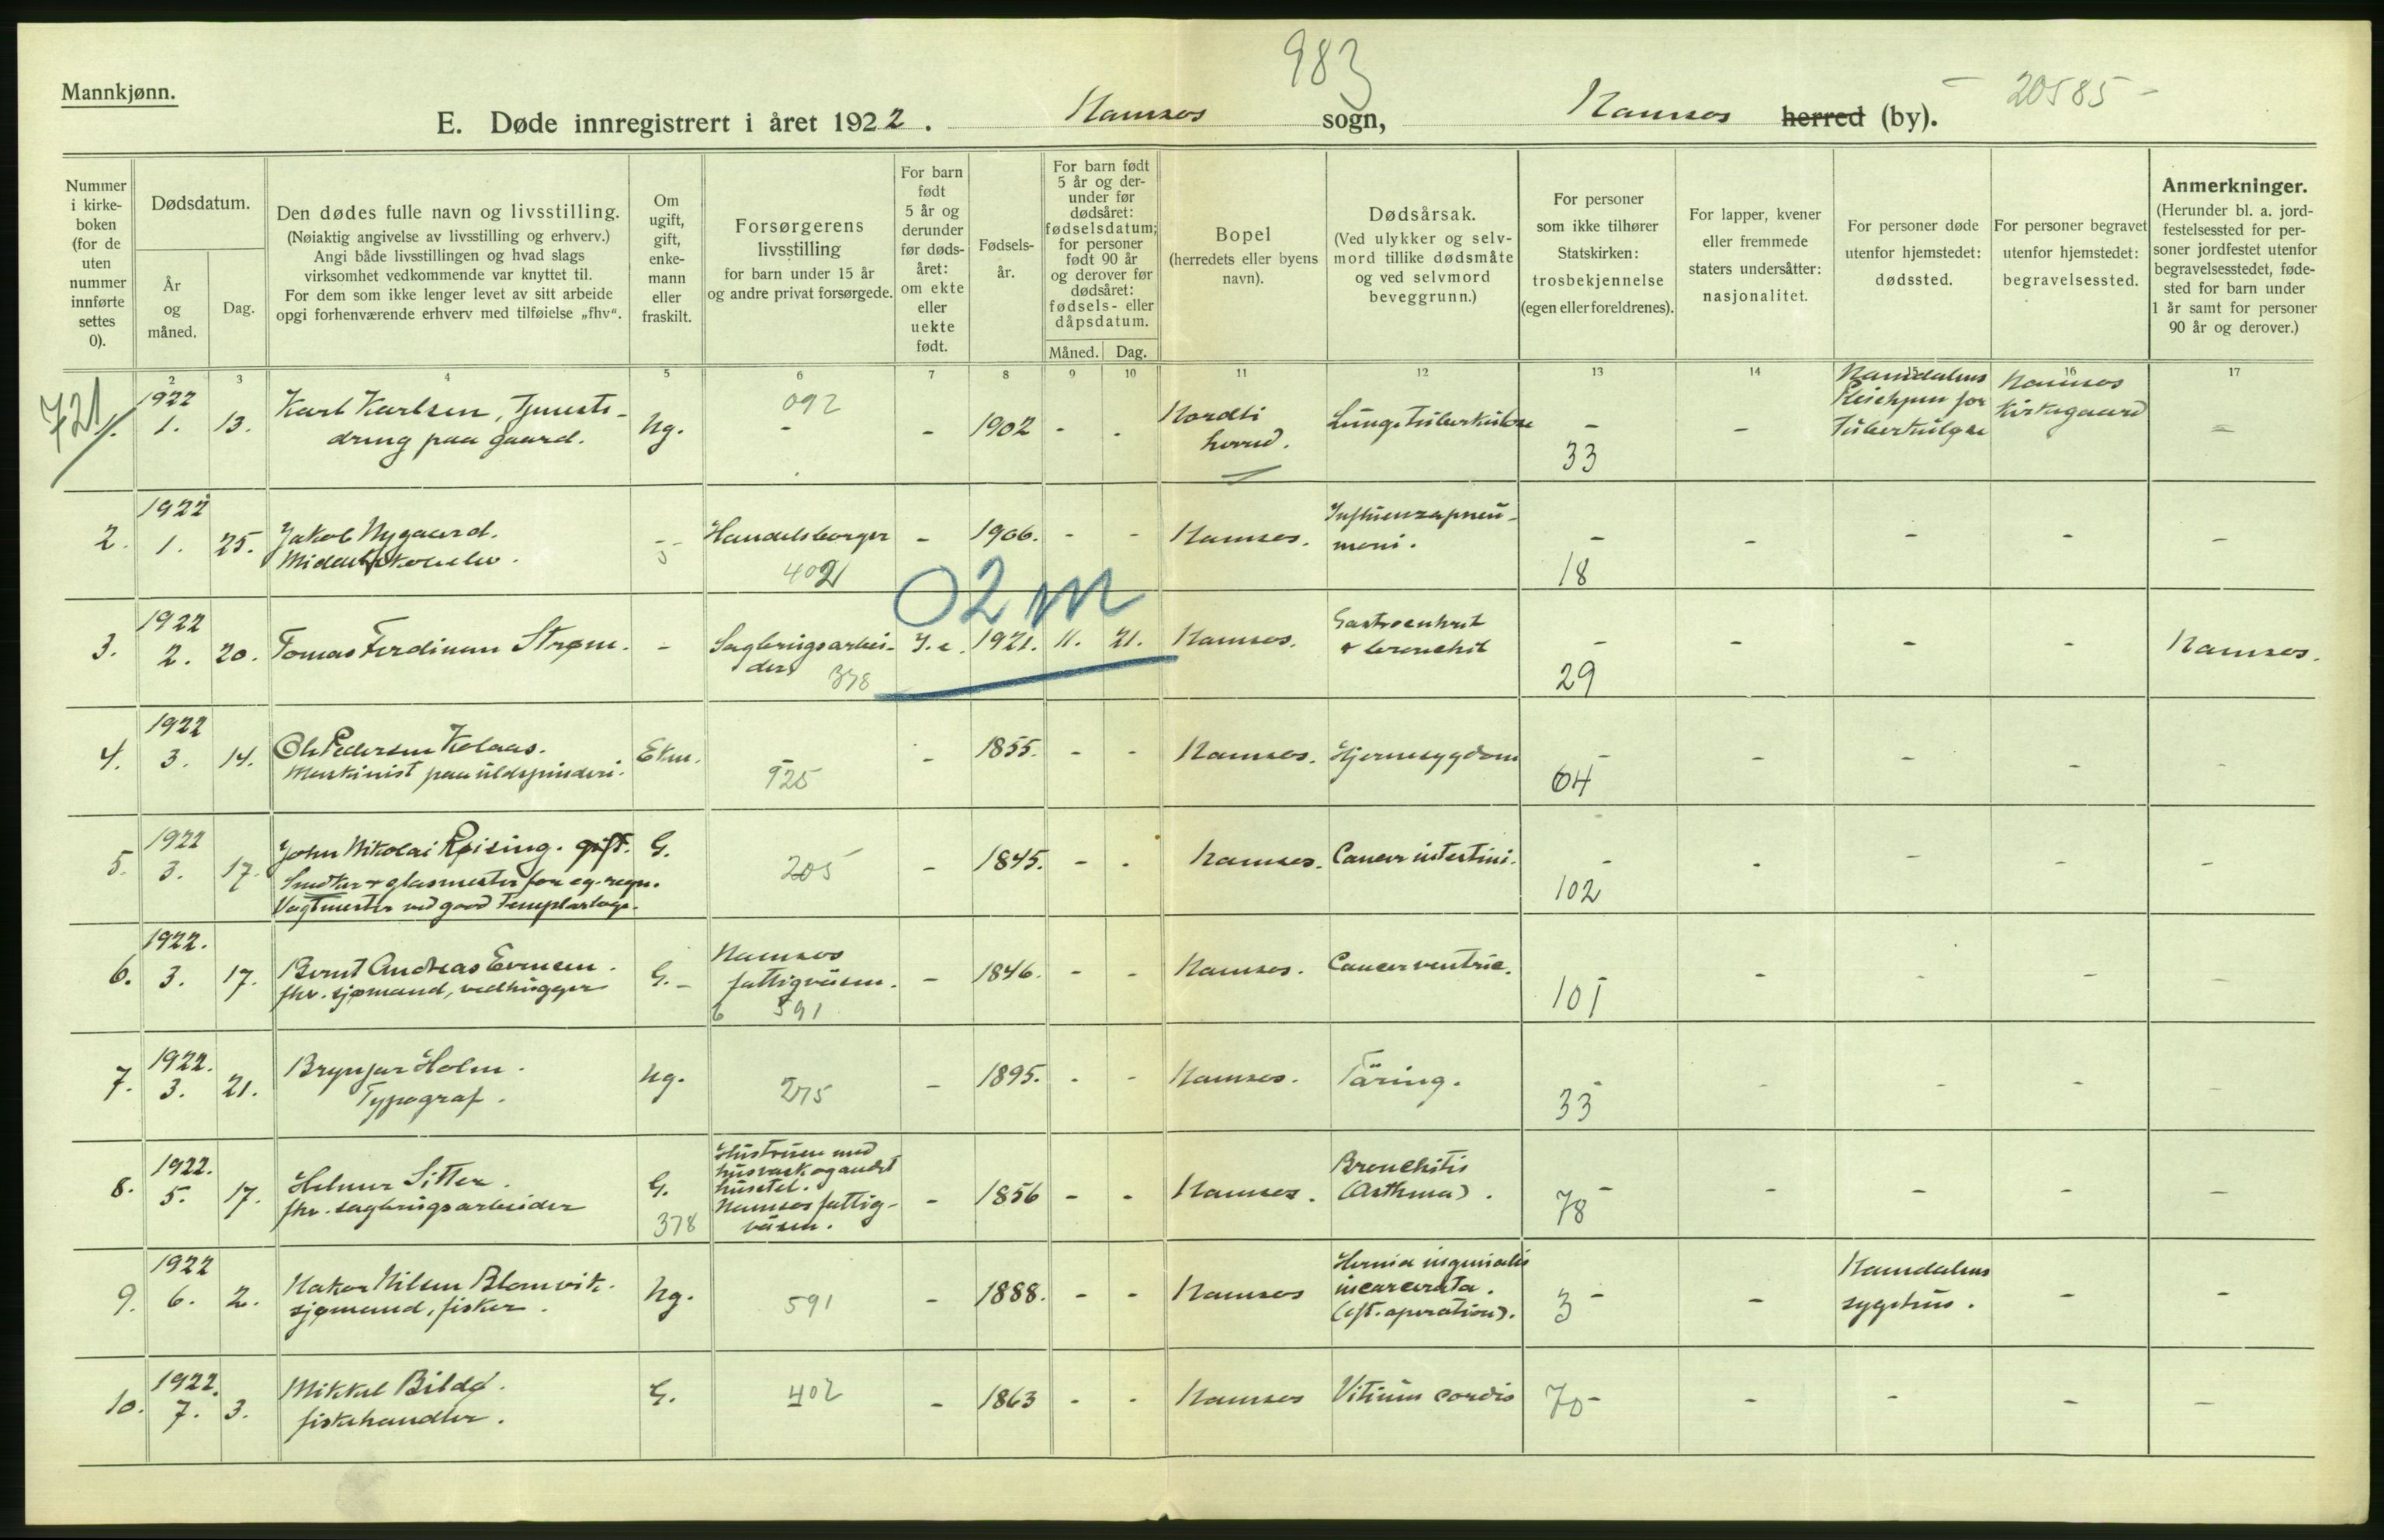 983
Mannkjønn.
E. Døde innregistrert i året 1922. Namsos sogn, Namsos herred (by). - 20585 -
Nummer i kirke-boken (for de uten nummer innførte settes 0).
Dødsdatum.
År og måned.
Dag.
Den dødes fulle navn og livsstilling.
(Nøiaktig angivelse av livsstilling og erhverv.)
Angi både livsstillingen og hvad slags
virksomhet vedkommende var knyttet til.
For dem som ikke lenger levet av sitt arbeide
opgi forhenværende erhverv med tilføielse „fhv“.
Om ugift, gift, enke-mann eller fraskilt.
Forsørgerens
livsstilling
for barn under 15 år
og andre privat forsørgede.
For barn født 5 år og derunder før døds-året: om ekte eller uekte født.
Fødsels-år.
For barn født 5 år og der-under før dødsåret: fødselsdatum; for personer født 90 år og derover før dødsåret: fødsels- eller dåpsdatum.
Måned. Dag.
Bopel
(herredets eller byens
navn).
Dødsårsak.
(Ved ulykker og selv-
mord tillike dødsmåte
og ved selvmord
beveggrunn.)
For personer
som ikke tilhører
Statskirken:
trosbekjennelse
(egen eller foreldrenes).
For lapper, kvener
eller fremmede
staters undersåtter:
nasjonalitet.
For personer døde
utenfor hjemstedet:
dødssted.
For personer begravet
utenfor hjemstedet:
begravelsessted.
Anmerkninger.
(Herunder bl. a. jord-
festelsessted for per-
soner jordfestet utenfor
begravelsesstedet, føde-
sted for barn under
1 år samt for personer
90 år og derover.)
2 3 4 5 6 7 8 9 10 11 12 13 14 15 16 17
721
1. 1922 1. 13. Karl Karlsen, Tjeneste-
dreng paa gaard. Ug. 092 - - 1902 - - Nordli
herred. Lungetuberkulose - 33 - Namdalens
Pleiehjem for
Tuberkuløse Namsos
Kirkegaard -
2. 1922 1. 25. Jakob Nygaard.
Middelskoleelev. - Handelsborger
402 - 1906. - - Namsos. Influenzapneu-
moni. - 18 - - - -
02 m
3. 1922 2. 20. Tomas Ferdinan Strøm. - Sagbrugsarbei-
der 378 1921. 11. 21. Namsos. Gastroenterit
+ bronchit - 29 - - - Namsos.
4. 1922 3. 14. Ole Pedersen Kolaas.
Maskinist paa uldspinderi. Ekm. - 925 - 1855. - - Namsos. Hjernesygdom - 64 - - - -
5. 1922 3. 17. John Nikolai Røising. gift. G.
Snedker + glasmester for eg. regn.
Vagtmester ved good Templarloge. 205 - 1845. - - Namsos. Cancer intestini. - 102 - - - -
6. 1922. 3. 17. Bernt Andreas Evensen.
fhv. sjømand, vedhugger G. - Namsos
fattigväsen.
6 591 - 1846. - - Namsos. Cancer ventric. 101 - - - -
7. 1922. 3. 21. Brynjar Holm.
Typograf. Ug. 275 - 1895. - - Namsos. Täring. - 33 - - - -
8. 1922. 5. 17. Helmer Sitter.
fhv. sagbrugsarbeider G. 378 Hustruen med
husvask og andet
husstel.
Namsos fattig-
väsen. - 1856 - - Namsos. Bronchitis
(Asthma). - 78 - - - -
9. 1922 6. 2. Hakon Nilsen Blomvik.
sjømand, fisker. Ug. 591 - 1888. - - Namsos Hernia inguinalis
incarcerata.
(eft. operation). 3 - - Namdalens
sygehus. - -
10. 1922. 7. 3. Mikkel Bildø.
fiskehandler. G. 402 - 1863 - - Namsos Vitium cordis 70 - - - - -